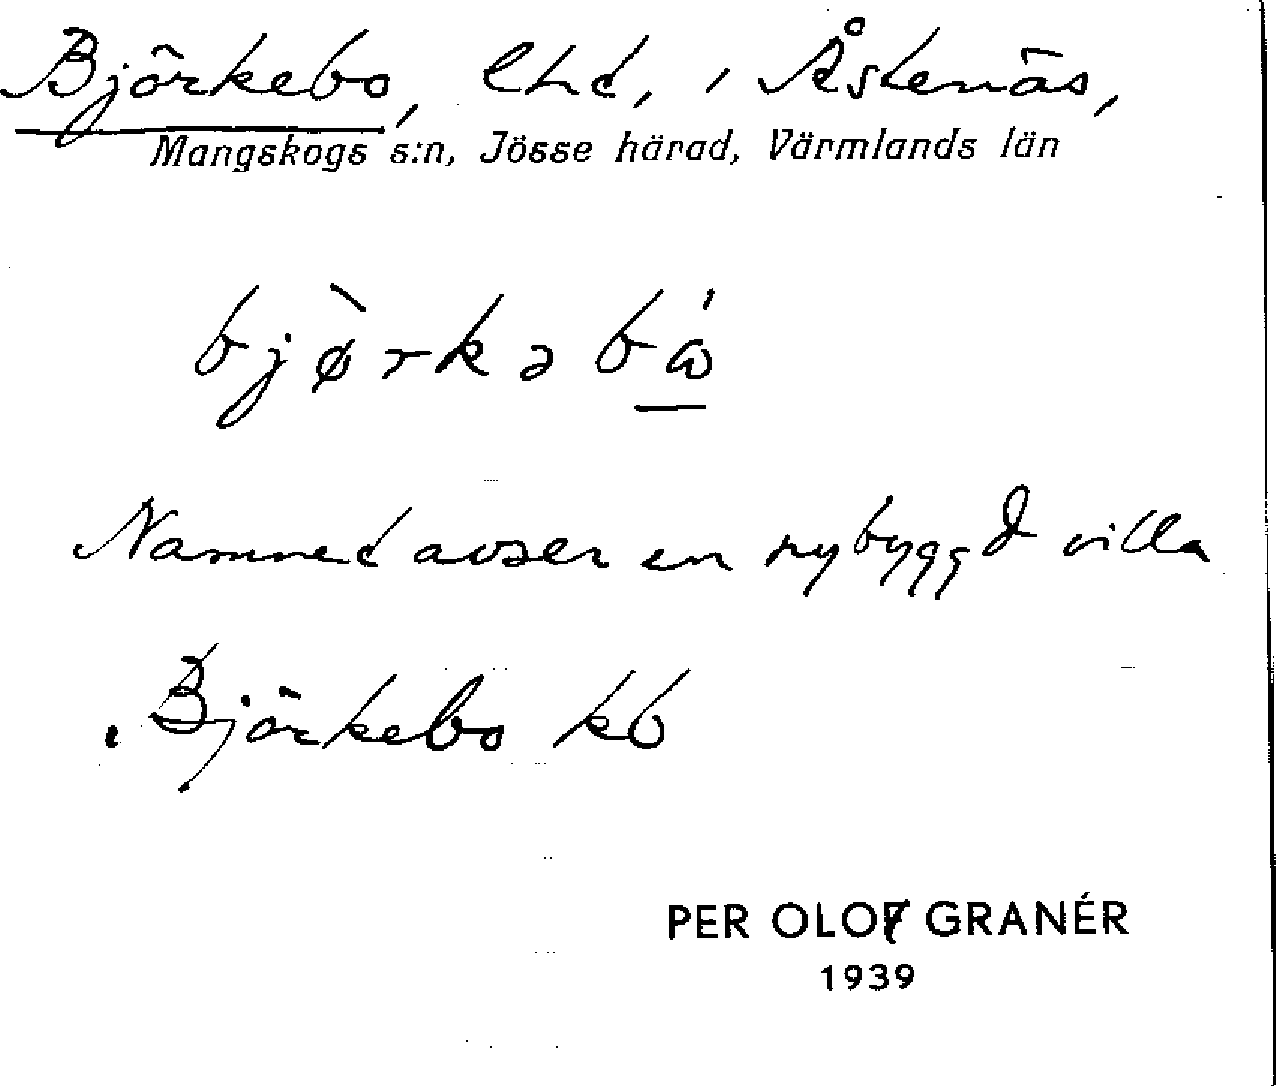 Björkebo, lhd, i Åstenäs,
Mangskogs s:n, Jösse härad, Värmlands län
bjø̀rkəbώ
Namnet avser en nybyggd villa
. Björkebo kb
PER OLOF GRANÉR
1939